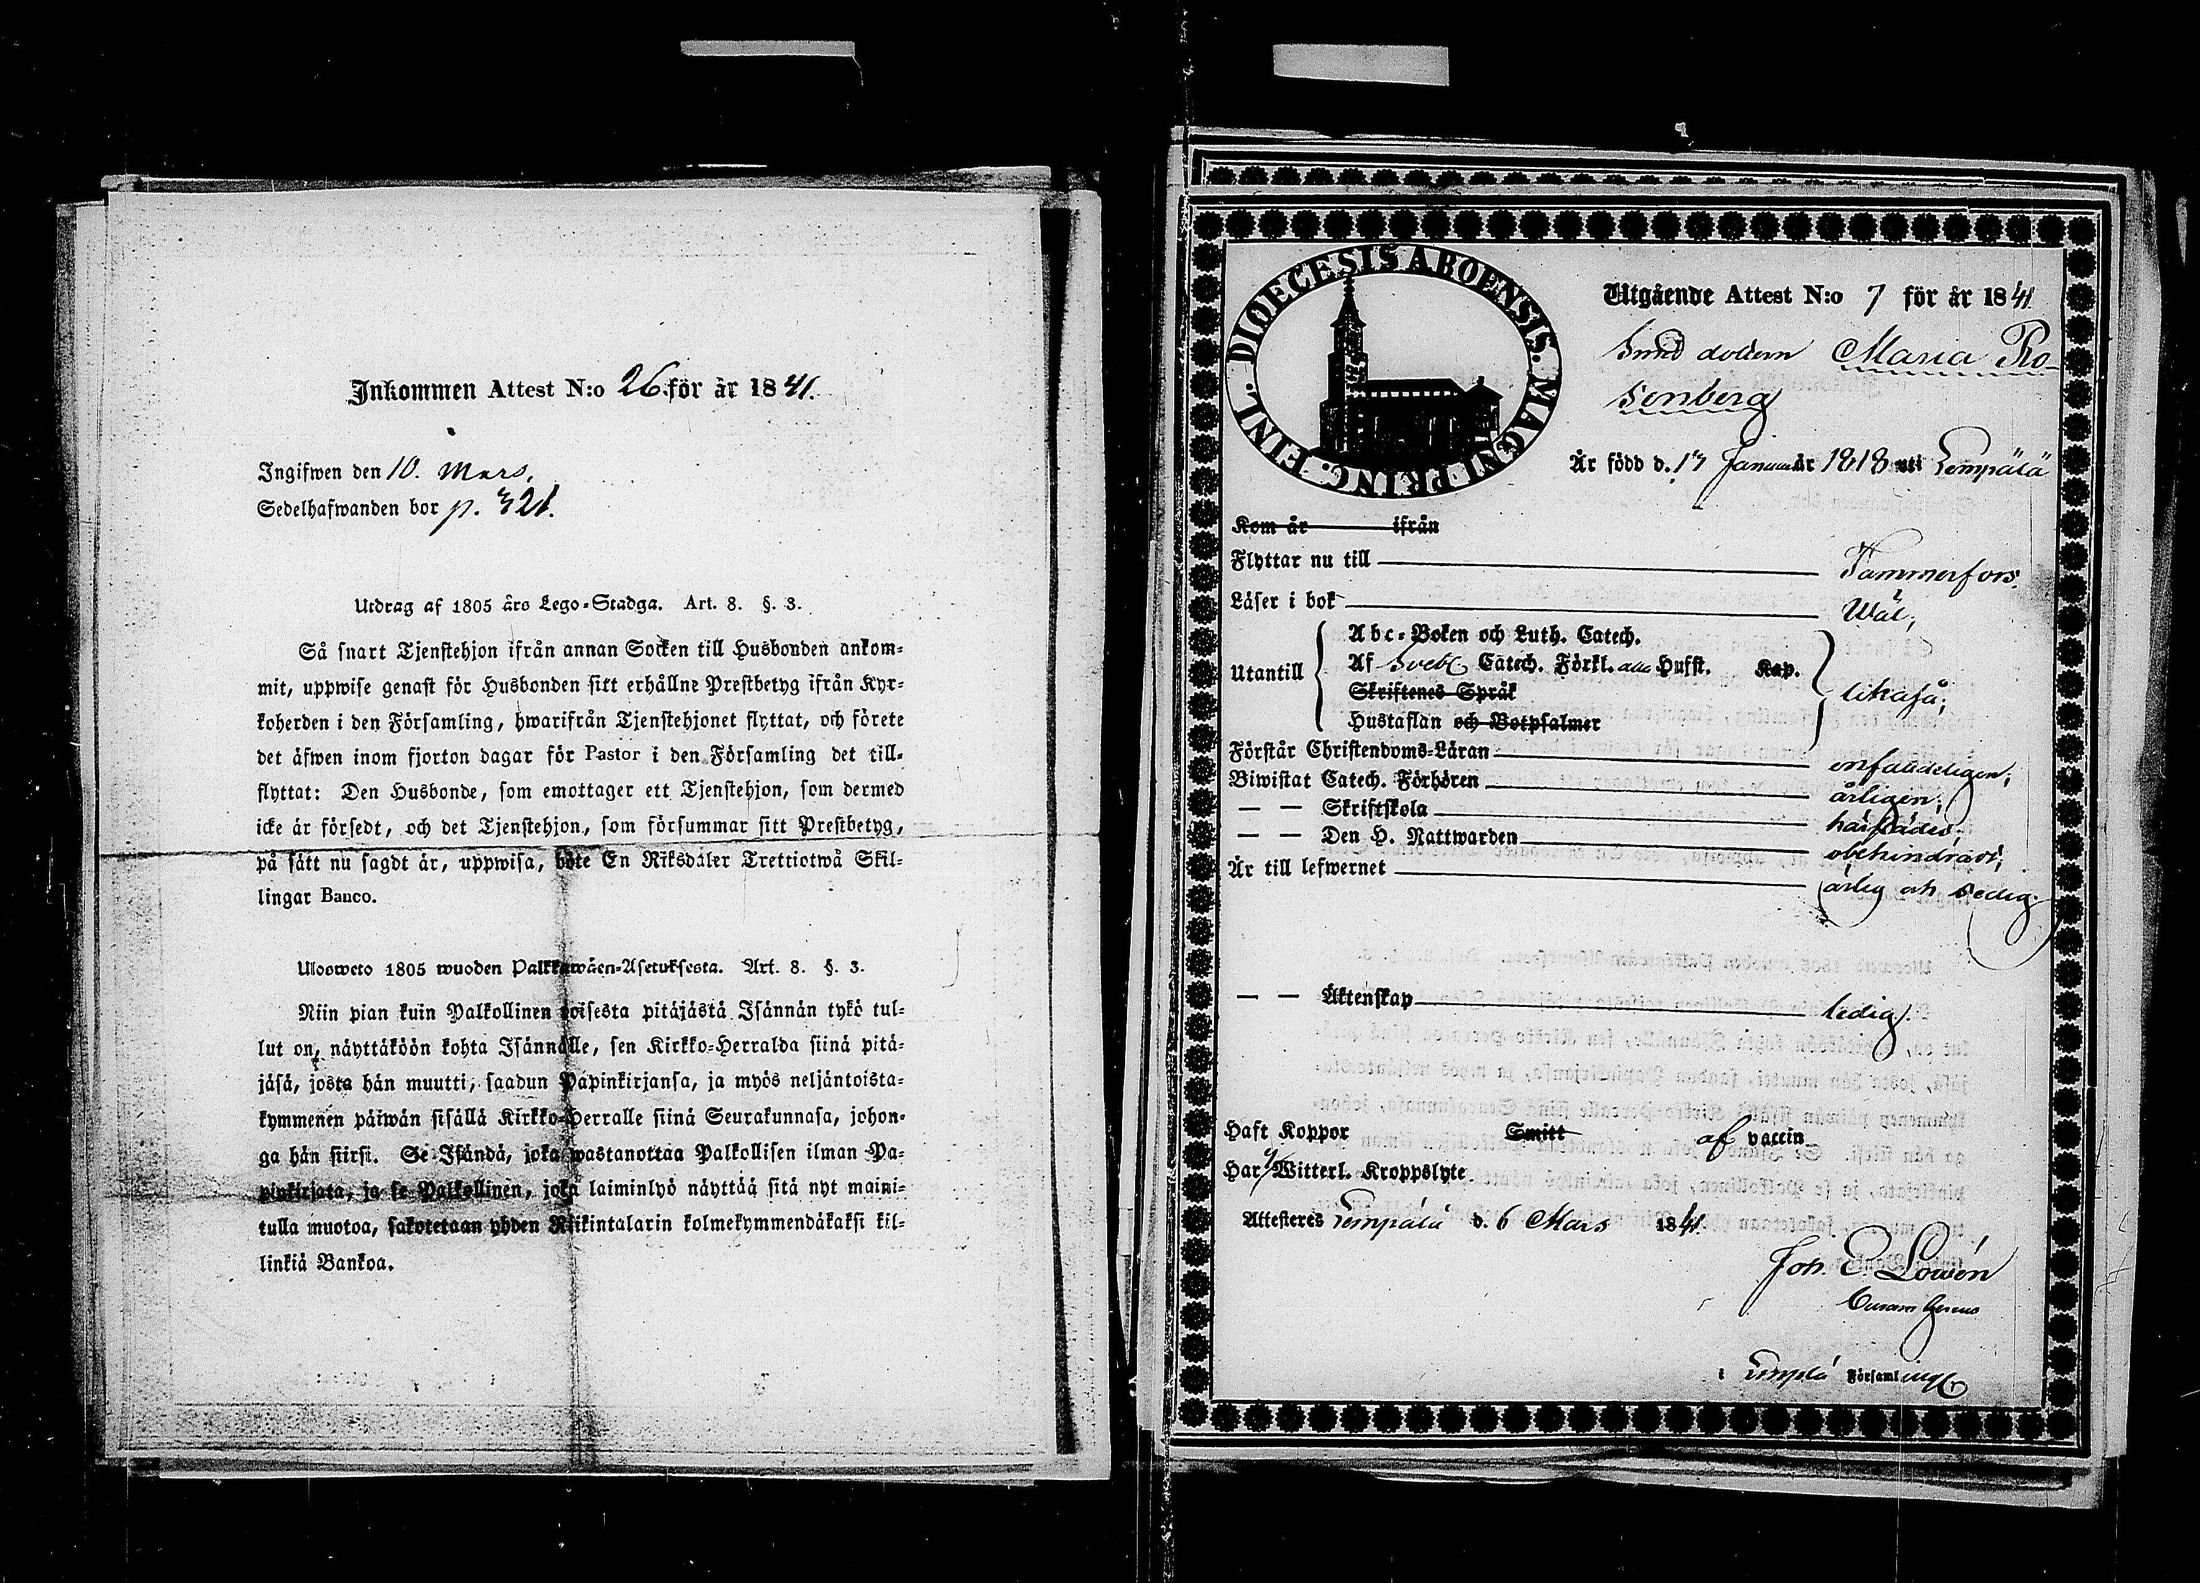 Inkommen Attest N:o 26. för år 1841.
Ingifwen den 10. Mars,
Sedelhafwanden bor p. 321.
Utdrag af 1805 års Lego-Stadga. Art. 8. §. 3.
Så snart Tjenstehjon ifrån annan Socken till Husbonden ankom-
mit, uppwise genast för Husbonden sitt erhållne Prestbetyg ifrån Kyr-
koherden i den Församling, hwarifrån Tjenstehjonet flyttat, och förete
det äfwen inom fjorton dagar för Pastor i den Församling det till-
flyttat: Den Husbonde, som emottager ett Tjenstehjon, som dermed
icke är försedt, och det Tjenstehjon, som försummar sitt Prestbetyg,
på sätt nu sagdt är, uppwisa, böte En Riksdaler Trettiotwå Skil-
lingar Banco.
Ulosweto 1805 wuoden Palkkawäen-Asetuksesta. Art. 8. §. 3.
Niin pian kuin Palkollinen toisesta pitäjästä Isännän tykö tul-
lut on, näyttäköön kohta Isännälle, sen Kirkko-Herralda siinä pitä-
jäsä, josta hän muutti, saadun Papinkirjansa, ja myös neljäntoista-
kymmenen päiwän sisällä Kirkko-Herralle siinä Seurakunnasa, johon-
ga hän siirsi. Se Isändä, joka wastanottaa Palkollisen ilman Pa-
pinkirjata, ja se Palkollinen, joka laiminlyö näyttää sitä nyt maini-
tulla muotoa, sakotetaan yhden Riikintalarin kolmekymmendäkaksi kil-
linkiä Bankoa.
DIOECESIS ABOENSIS. MAGNI PRINC. FINL.
Utgående Attest N:o 7 för år 1841
Smed dottern Maria Ro-
senberg
Är född d. 13 Januari år 1818 uti Lempälä
Kom år ifrån
Flyttar nu till Tammerfors,
Läser i bok Wäl,
Abc-Boken och Luth. Catech.
Utantill Af Sveb Catech. Förkl. alla Hufst. Kap. likaså;
Skriftenes Språk
Hustaflan och Botpsalmer
Förstår Christendoms-Läran enfaldeligen;
Biwistat Catech. Förhören årligen;
— — Skriftskola härstädes;
— — Den H. Nattwarden obehindradt;
Är till lefwernet ärlig och sedig.
— — Äktenskap ledig.
Haft Koppor Smitt af vaccin
Har ej Witterl. Kroppslyte
Attesteres Lempälä d. 6 Mars 1841.
Joh. E. Lowén
Curam Gerens
i Lempälä Församling